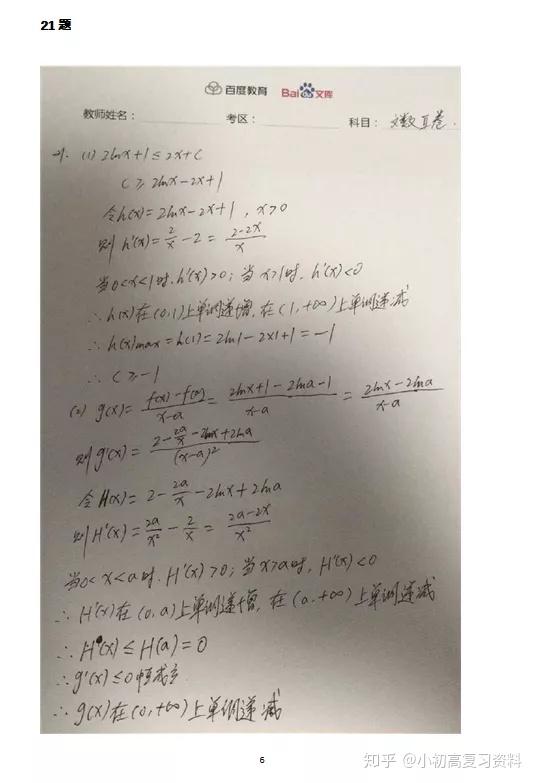 21题
百度教育 Bai文库
教师姓名： 考区： 科目：文数Ⅱ卷.
21. (1) 2lnx+1≤2x+c
c≥2lnx-2x+1
令h(x)=2lnx-2x+1，x>0
则h'(x)=2/x-2=(2-2x)/x
当0<x<1时，h'(x)>0；当x>1时，h'(x)<0
∴h(x)在(0,1)上单调递增，在(1,+∞)上单调递减
∴h(x)max=h(1)=2ln1-2×1+1=-1
∴c≥-1
(2) g(x)=(f(x)-f(a))/(x-a)=(2lnx+1-2lna-1)/(x-a)=(2lnx-2lna)/(x-a)
则g'(x)=(2-2a/x-2lnx+2lna)/(x-a)²
令H(x)=2-2a/x-2lnx+2lna
则H'(x)=2a/x²-2/x=(2a-2x)/x²
当0<x<a时，H'(x)>0；当x>a时，H'(x)<0
∴H'(x)在(0,a)上单调递增，在(a,+∞)上单调递减
∴H(x)≤H(a)=0
∴g'(x)≤0恒成立
∴g(x)在(0,+∞)上单调递减
6
知乎 @小初高复习资料